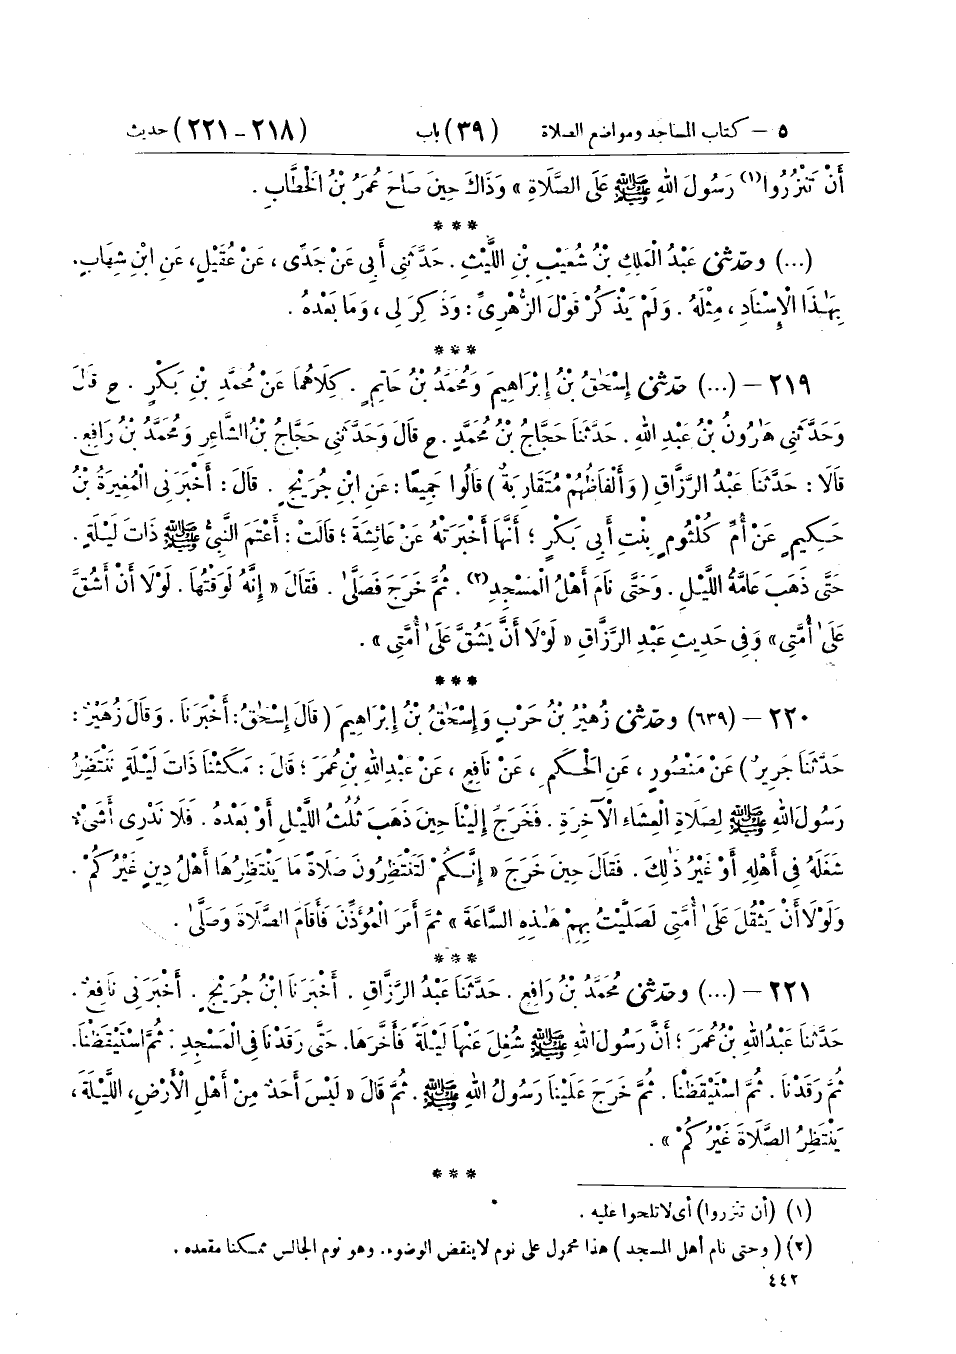 ٥ – كتاب المساجد ومواضع الصلاة (٣٩) باب (٢١٨ – ٢٢١) حديث
أَنْ تَنْزُرُوا(١) رَسُولَ اللهِ ﷺ عَلَى الصَّلَاةِ » وَذَاكَ حِينَ صَاحَ عُمَرُ بْنُ الْخَطَّابِ .
***
(...) وحدثنى عَبْدُ الْمَلِكِ بْنُ شُعَيْبِ بْنِ اللَّيْثِ . حَدَّثَنِى أَبِى عَنْ جَدِّى ، عَنْ عُقَيْلٍ، عَنِ ابْنِ شِهَابٍ.
بِهَٰذَا الْإِسْنَادِ ، مِثْلَهُ . وَلَمْ يَذْكُرْ قَوْلَ الزُّهْرِىِّ : وَذُكِرَ لِى ، وَمَا بَعْدَهُ .
***
٢١٩ – (...) حدثنى إِسْحَٰقُ بْنُ إِبْرَاهِيمَ وَمُحَمَّدُ بْنُ حَاتِمٍ . كِلَاهُمَا عَنْ مُحَمَّدِ بْنِ بَكْرٍ . ح قَالَ
وَحَدَّثَنِى هَٰرُونُ بْنُ عَبْدِ اللهِ . حَدَّثَنَا حَجَّاجُ بْنُ مُحَمَّدٍ . ح قَالَ وَحَدَّثَنِى حَجَّاجُ بْنُ الشَّاعِرِ وَمُحَمَّدُ بْنُ رَافِعٍ.
قَالَا : حَدَّثَنَا عَبْدُ الرَّزَّاقِ ( وَأَلْفَاظُهُمْ مُتَقَارِبَةٌ ) قَالُوا جَمِيعًا : عَنِ ابْنِ جُرَيْجٍ . قَالَ : أَخْبَرَنِى الْمُغِيرَةُ بْنُ
حَكِيمٍ عَنْ أُمِّ كُلْثُومٍ بِنْتِ أَبِى بَكْرٍ ؛ أَنَّهَا أَخْبَرَتْهُ عَنْ عَائِشَةَ ؛ قَالَتْ : أَعْتَمَ النَّبِىُّ ﷺ ذَاتَ لَيْلَةٍ .
حَتَّى ذَهَبَ عَامَّةُ اللَّيْلِ . وَحَتَّى نَامَ أَهْلُ الْمَسْجِدِ(٢) . ثُمَّ خَرَجَ فَصَلَّىٰ . فَقَالَ « إِنَّهُ لَوَقْتُهَا . لَوْلَا أَنْ أَشُقَّ
عَلَىٰ أُمَّتِى» وَفِى حَدِيثِ عَبْدِ الرَّزَّاقِ « لَوْلَا أَنْ يَشُقَّ عَلَىٰ أُمَّتِى » .
***
٢٢٠ – (٦٣٩) وحدثنى زُهَيْرُ بْنُ حَرْبٍ وَإِسْحَٰقُ بْنُ إِبْرَاهِيمَ ( قَالَ إِسْحَٰقُ: أَخْبَرَنَا . وَقَالَ زُهَيْرٌ :
حَدَّثَنَا جَرِيرٌ ) عَنْ مَنْصُورٍ ، عَنِ الْحَكَمِ ، عَنْ نَافِعٍ ، عَنْ عَبْدِ اللهِ بْنِ عُمَرَ ؛ قَالَ : مَكَثْنَا ذَاتَ لَيْلَةٍ نَنْتَظِرُ
رَسُولَ اللهِ ﷺ لِصَلَاةِ الْعِشَاءِ الْآخِرَةِ . فَخَرَجَ إِلَيْنَا حِينَ ذَهَبَ ثُلُثُ اللَّيْلِ أَوْ بَعْدَهُ . فَلَا نَدْرِى أَشَىْءٌ
شَغَلَهُ فِى أَهْلِهِ أَوْ غَيْرُ ذَٰلِكَ . فَقَالَ حِينَ خَرَجَ « إِنَّكُمْ لَتَنْتَظِرُونَ صَلَاةً مَا يَنْتَظِرُهَا أَهْلُ دِينٍ غَيْرُكُمْ .
وَلَوْلَا أَنْ يَثْقُلَ عَلَىٰ أُمَّتِى لَصَلَّيْتُ بِهِمْ هَٰذِهِ السَّاعَةَ » ثُمَّ أَمَرَ الْمُؤَذِّنَ فَأَقَامَ الصَّلَاةَ وَصَلَّىٰ .
***
٢٢١ – (...) وحدثنى مُحَمَّدُ بْنُ رَافِعٍ . حَدَّثَنَا عَبْدُ الرَّزَّاقِ . أَخْبَرَنَا ابْنُ جُرَيْجٍ . أَخْبَرَنِى نَافِعٌ .
حَدَّثَنَا عَبْدُ اللهِ بْنُ عُمَرَ ؛ أَنَّ رَسُولَ اللهِ ﷺ شُغِلَ عَنْهَا لَيْلَةً فَأَخَّرَهَا. حَتَّى رَقَدْنَا فِى الْمَسْجِدِ . ثُمَّ اسْتَيْقَظْنَا.
ثُمَّ رَقَدْنَا . ثُمَّ اسْتَيْقَظْنَا . ثُمَّ خَرَجَ عَلَيْنَا رَسُولُ اللهِ ﷺ . ثُمَّ قَالَ « لَيْسَ أَحَدٌ مِنْ أَهْلِ الْأَرْضِ، اللَّيْلَةَ ،
يَنْتَظِرُ الصَّلَاةَ غَيْرُكُمْ » .
***
(١) (أن تنزروا) أى لا تلحوا عليه .
(٢) ( وحتى نام أهل المسجد ) هذا محمول على نوم لا ينقض الوضوء. وهو نوم الجالس ممكنا مقعده .
٤٤٢